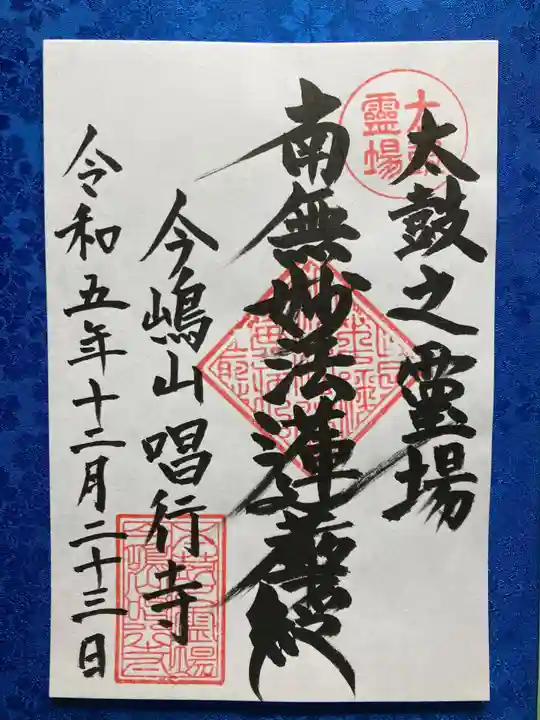 太鼓之霊場
南無妙法蓮華経
今嶋山 唱行寺
令和五年十二月二十三日
太鼓
靈場